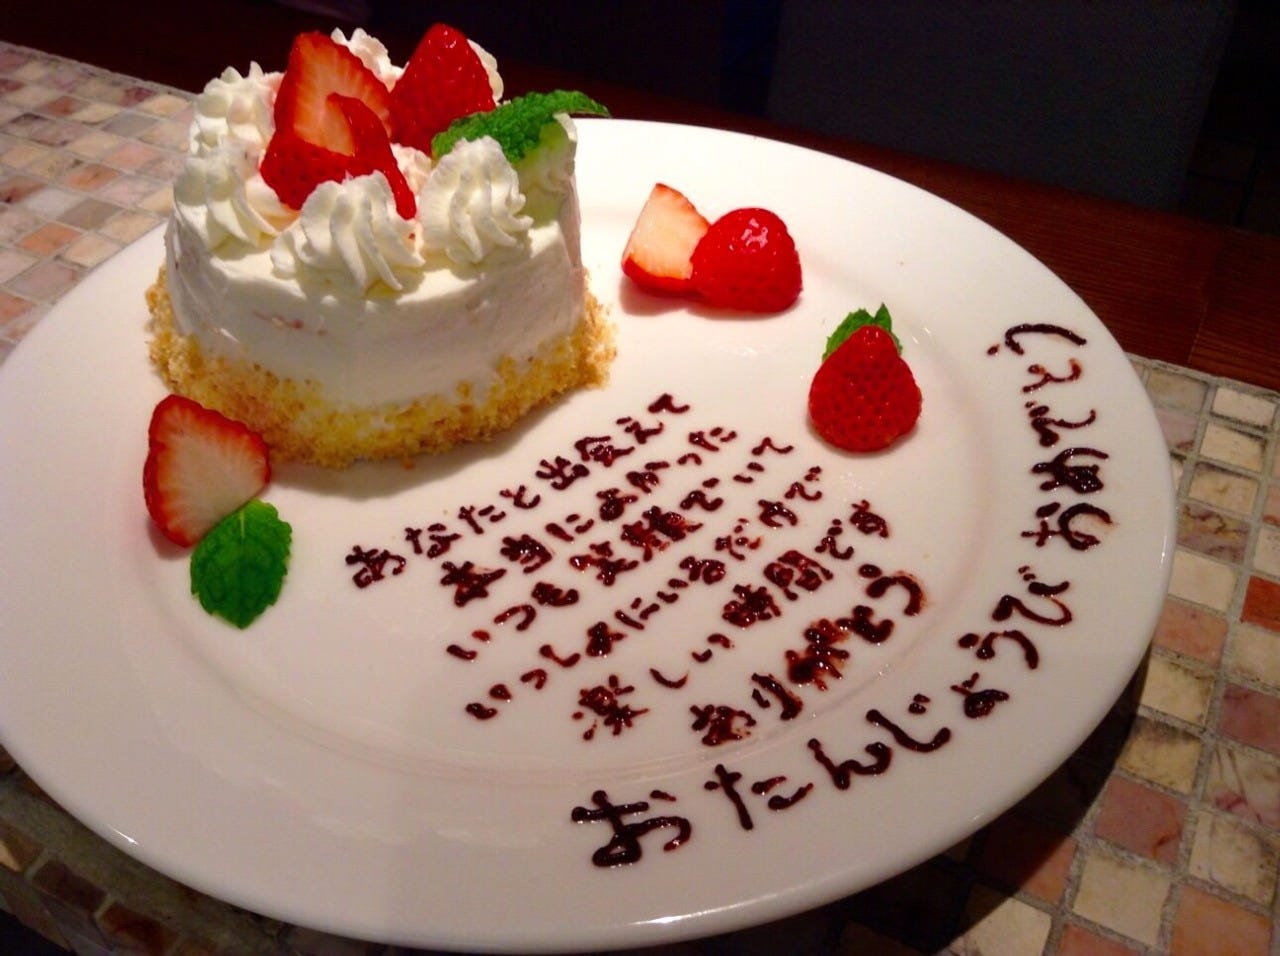 あなたと出会えて
本当によかった
いつも笑顔でいて
いっしょにいるだけで
楽しい時間です
ありがとう
おたんじょうびおめでとう